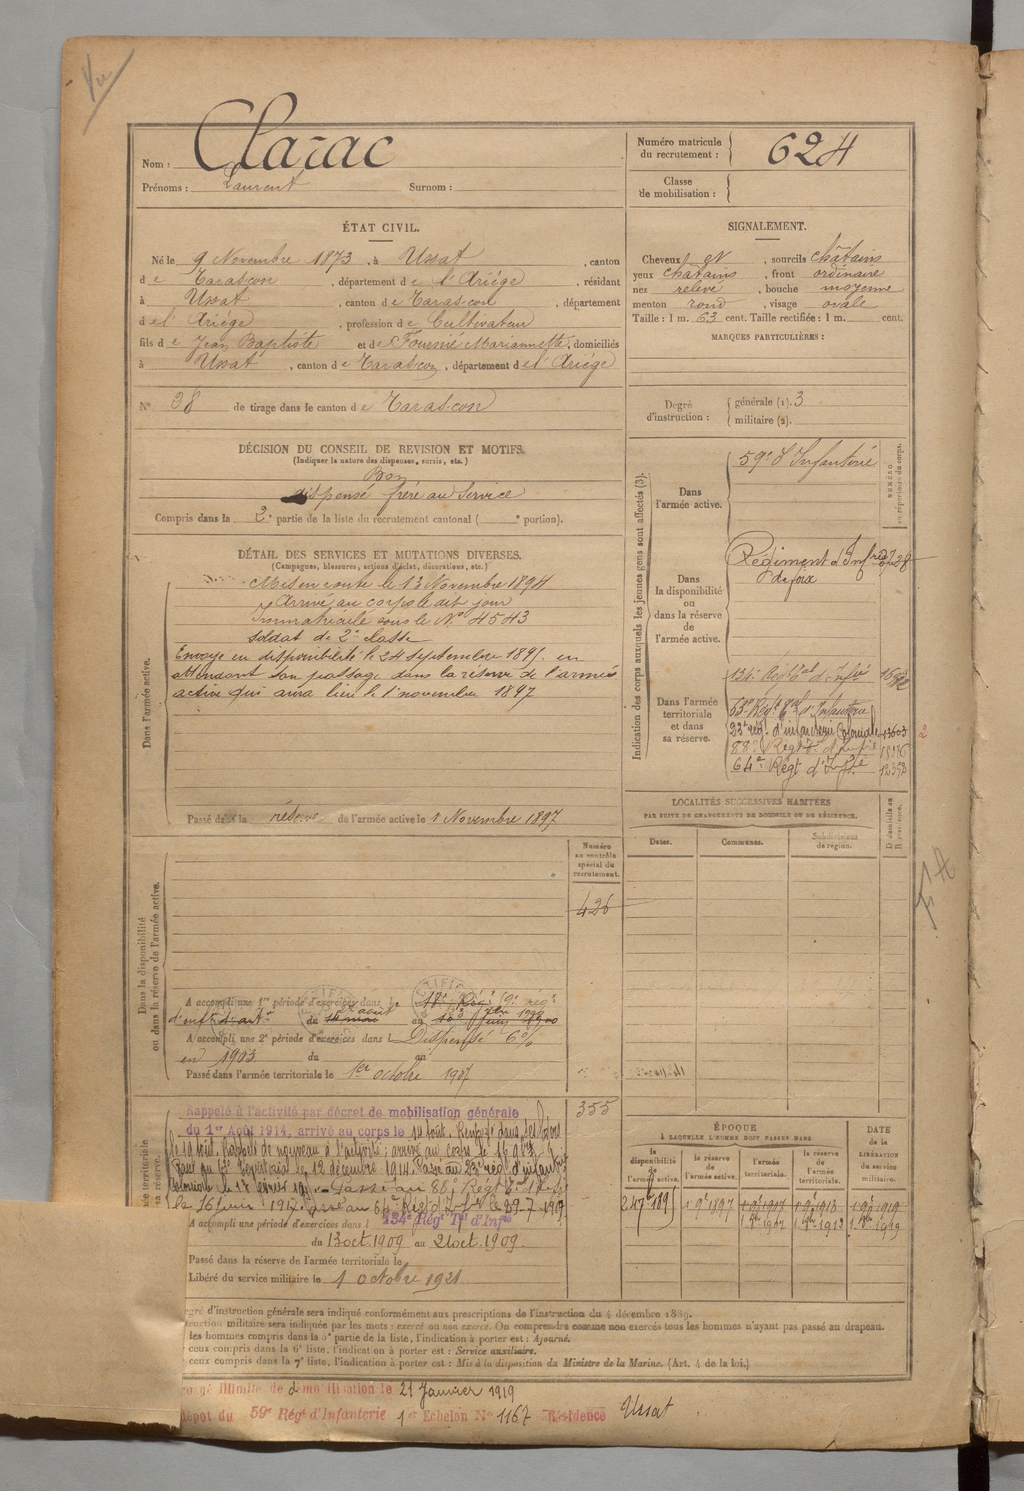 Vu
Nom : Clarac
Prénoms : Laurent Surnom :
Numéro matricule du recrutement : 624
Classe de mobilisation :
ÉTAT CIVIL.
Né le 9 Novembre 1873, à Ussat, canton
de Tarascon, département de l'Ariège, résidant
à Ussat, canton de Tarascon, département
de l'Ariège, profession de Cultivateur
fils de Jean Baptiste et de Fournié Mariannette, domiciliés
à Ussat, canton de Tarascon, département de l'Ariège
N° 38 de tirage dans le canton de Tarascon
SIGNALEMENT.
Cheveux et, sourcils châtains
yeux châtains, front ordinaire
nez relevé, bouche moyenne
menton rond, visage ovale
Taille : 1 m. 63 cent. Taille rectifiée : 1 m. cent.
MARQUES PARTICULIÈRES :
Degré d'instruction : générale (1). 3
militaire (2).
DÉCISION DU CONSEIL DE REVISION ET MOTIFS.
(Indiquer la nature des dispenses, sursis, etc.)
Bon
dispensé frère au Service
Compris dans la 2e partie de la liste du recrutement cantonal ( e portion).
DÉTAIL DES SERVICES ET MUTATIONS DIVERSES.
(Campagnes, blessures, actions d'éclat, décorations, etc.)
Dans l'armée active.
Mis en route le 13 Novembre 1894
Arrivé au corps le dit jour
Immatriculé sous le N° 4543
Soldat de 2e classe
Envoyé en disponibilité le 24 septembre 1895 en
attendant son passage dans la réserve de l'armée
active qui aura lieu le 1 novembre 1897
Passé dans la réserve de l'armée active le 1 Novembre 1897
Indication des corps auxquels les jeunes gens sont affectés (3).
NUMÉRO au répertoire du corps.
Dans l'armée active.
59e d'Infanterie
Dans la disponibilité ou dans la réserve de l'armée active.
Régiment d'Infrie
de foix
Dans l'armée territoriale et dans sa réserve.
134e Régt Tal d'Infie
53e Régt Tal d'Infanterie
23e régt d'infanterie Coloniale 13603
88e Régt Tal d'Infie
64e Régt d'Infie 12352
LOCALITÉS SUCCESSIVES HABITÉES
PAR SUITE DE CHANGEMENTS DE DOMICILE OU DE RÉSIDENCE.
Dates. Communes. Subdivisions de région. D domicile ou R résidence.
Dans la disponibilité ou dans la réserve de l'armée active.
Numéro au contrôle spécial du recrutement.
426
A accompli une 1re période d'exercices dans le
A accompli une 2e période d'exercices dans l Dispensé 6%
en 1903 du au
Passé dans l'armée territoriale le 1er octobre 1907
355
Rappelé à l'activité par décret de mobilisation générale
du 1er Août 1914, arrivé au corps le 14 Août. Renvoyé dans ses foyers
le 19 Août. Rappelé de nouveau à l'activité ; arrivé au corps le
Passé au territorial le 12 décembre 1914. Passé au 23e régt d'infant
Coloniale le Passé au 88e Régt Tal d'Infie
le 16 juin 1917. Passé au 64e Régt d'Infie le 29-7-1917
A accompli une période d'exercices dans l 134e Régt Tal d'Infie
du 13 oct 1909 au 21 oct. 1909.
Passé dans la réserve de l'armée territoriale le
Libéré du service militaire le 1 octobre 1921
ÉPOQUE
À LAQUELLE L'HOMME DOIT PASSER DANS
DATE DE LA LIBÉRATION du service militaire.
la disponibilité de l'armée active. la réserve de l'armée active. l'armée territoriale. la réserve de l'armée territoriale.
egré d'instruction générale sera indiqué conformément aux prescriptions de l'instruction du 4 décembre 1889.
truction militaire sera indiquée par les mots : exercé ou non exercé. On comprendra comme non exercés tous les hommes n'ayant pas passé au drapeau.
les hommes compris dans la 5e partie de la liste, l'indication à porter est : Ajourné.
ceux compris dans la 6e liste, l'indication à porter est : Service auxiliaire.
ceux compris dans la 7e liste, l'indication à porter est : Mis à la disposition du Ministre de la Marine. (Art. 4 de la loi.)
ongé illimité de démobilisation le 21 Janvier 1919
épôt du 59e Régt d'Infanterie 1er Echelon N° 1167 Résidence Ussat